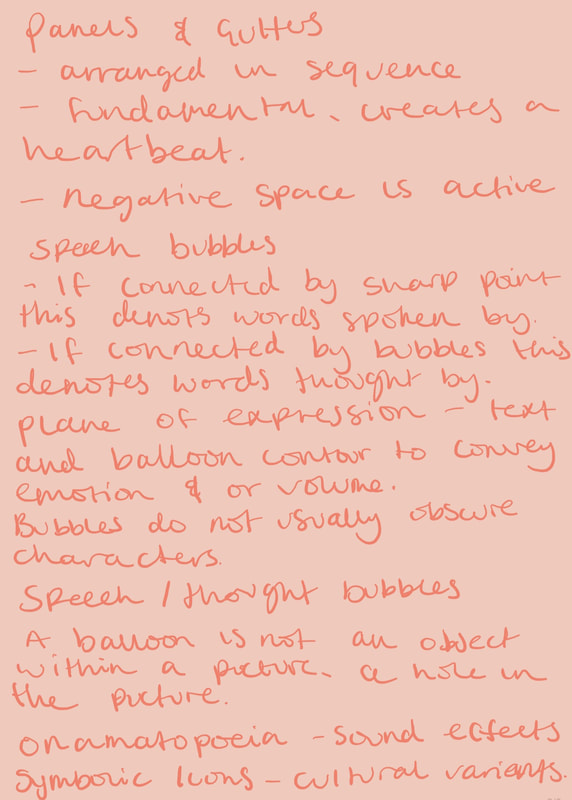 Panels & Gutters
- arranged in sequence
- fundamental, creates a
heartbeat.
- negative space is active
speech bubbles
- If connected by sharp point
this denots words spoken by.
- If connected by bubbles this
denotes words thought by.
plane of expression - text
and balloon contour to convey
emotion & or volume.
Bubbles do not usually obscure
characters.
Speech / thought bubbles
A balloon is not an object
within a picture, a hole in
the picture.
onamatopoeia - sound effects
Symbolic Icons - cultural variants.